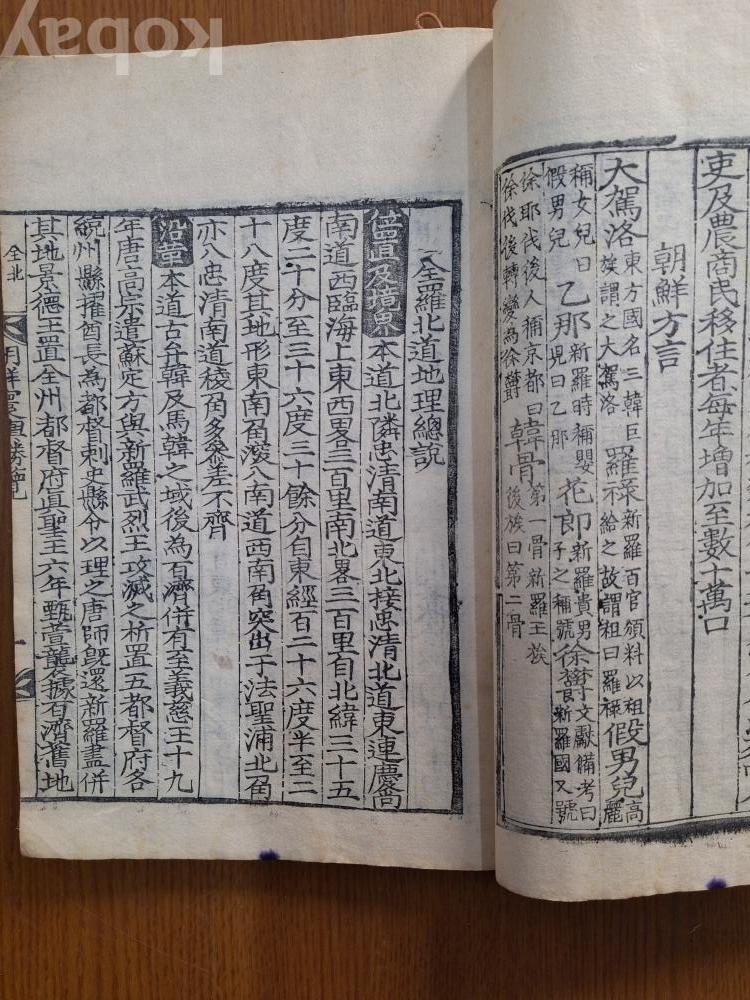 吏及農商民移住者每年增加至數十萬口
朝鮮方言
大駕洛 東方國名三韓巨
族謂之大駕洛
羅祿 新羅百官頒料以租
示給之故謂租曰羅祿
假男兒 高
麗
稱女兒曰
假男兒
乙那 新羅時稱嬰
兒曰乙那
花郎 新羅貴男
子之稱號
徐 文獻備考曰
新羅國又號
徐耶伐後人稱京都曰
徐伐後轉變為徐
韓骨 第一骨新羅王族
後族曰第二骨
全羅北道地理總說
位置及境界 本道北隣忠清南道東北接忠清北道東連慶尙
南道西臨海上東西畧三百里南北畧三百里自北緯三十五
度二十分至三十六度三十餘分自東經百二十六度半至二
十八度其地形東南角深入南道西南角突出于法聖浦北角
亦入忠清南道稜角多參差不齊
沿革 本道古弁韓及馬韓之域後為百濟併有至義慈王十九
年唐高宗遣蘇定方與新羅武烈王攻滅之析置五都督府各
統州縣擢酋長為都督刺史縣令以理之唐師旣還新羅盡併
其地景德王置全州都督府眞聖王六年甄萱襲據百濟舊地
全北
勝覽
一
kobay